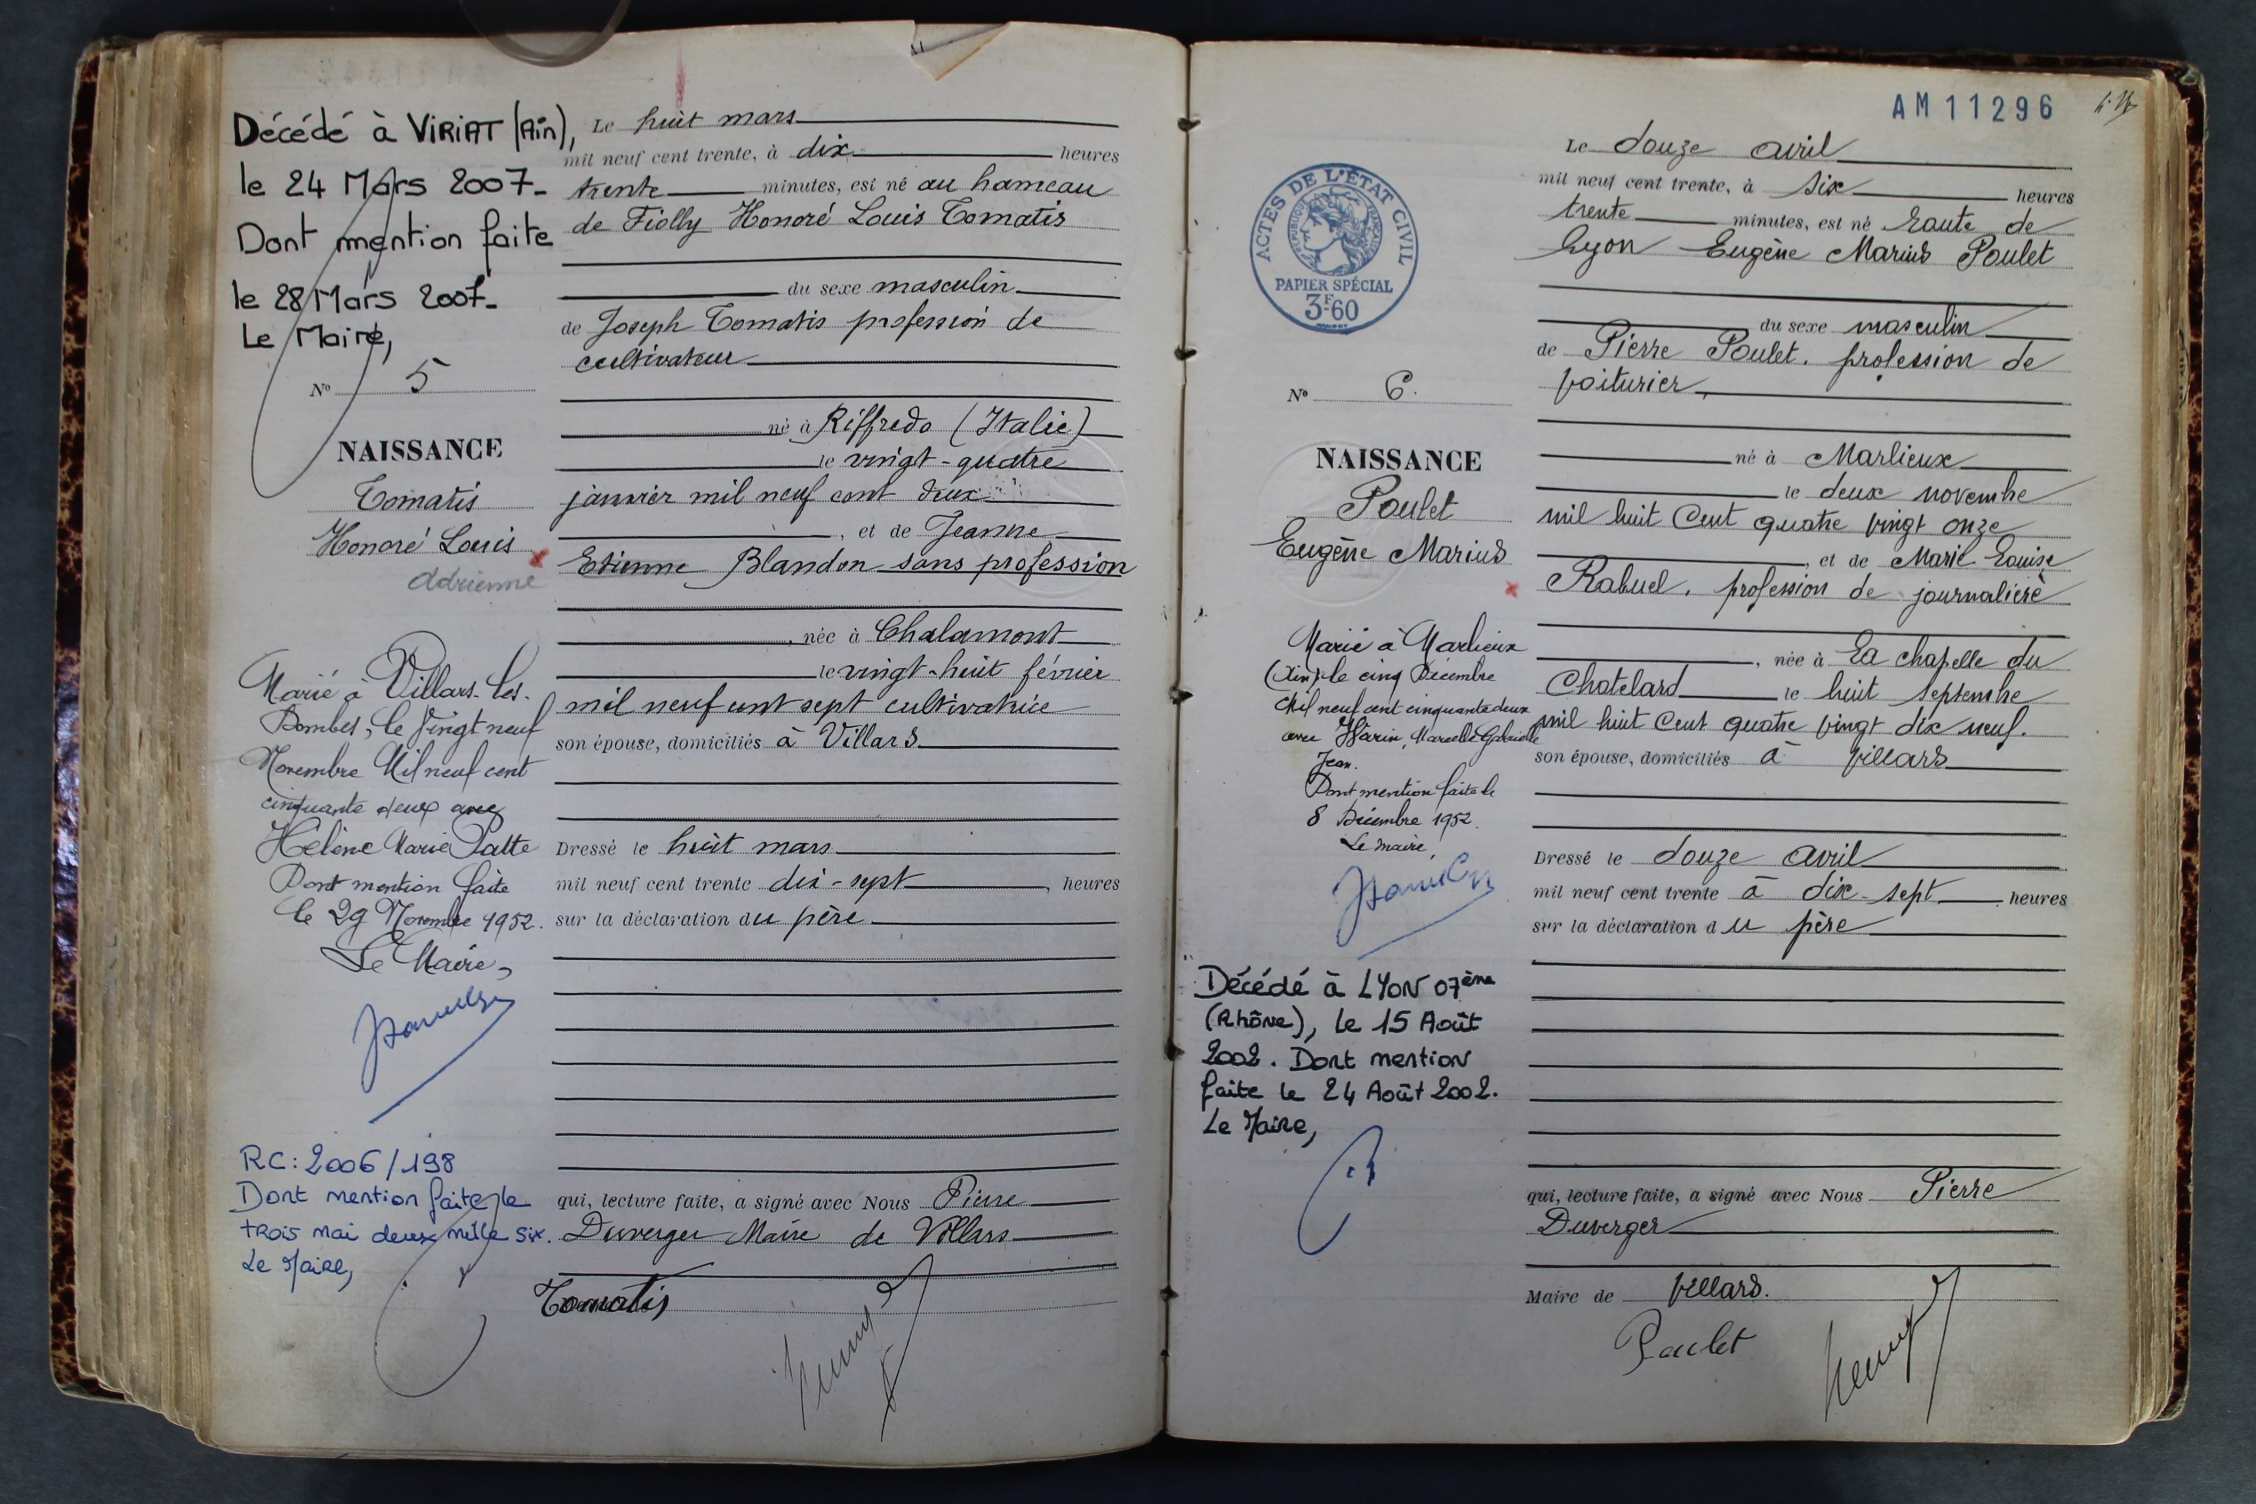 Décédé à VIRIAT (Ain),
le 24 Mars 2007_
Dont mention faite
le 28 Mars 2007_
Le Maire,
N° 5
NAISSANCE
Tomatis
Honoré Louis
Adrienne
Marié à Villars-les-
Dombes, le vingt neuf
Novembre Mil neuf cent
cinquante deux avec
Hélène Marie Patte
Dont mention faite
le 29 Novembre 1952.
Le Maire,
RC: 2006/198
Dont mention faite le
trois mai deux mille six.
Le Maire,
Le huit mars
mil neuf cent trente, à dix heures
trente minutes, est né au hameau
de Fiolly Honoré Louis Tomatis
du sexe masculin
de Joseph Tomatis profession de
cultivateur
né à Riffredo (Italie)
le vingt-quatre
janvier mil neuf cent deux
, et de Jeanne
Etienne Blandon sans profession
, née à Chalamont
le vingt-huit février
mil neuf cent sept cultivatrice
son épouse, domiciliés à Villars
Dressé le huit mars
mil neuf cent trente dix-sept, heures
sur la déclaration du père
qui, lecture faite, a signé avec Nous Pierre
Duverger Maire de Villars
Tomatis
AM11296
ACTES DE L'ÉTAT CIVIL
RÉPUBLIQUE FRANÇAISE
PAPIER SPÉCIAL
3F60
N° 6.
NAISSANCE
Poulet
Eugène Marius
Marié à Marlieux
(Ain) le cinq Décembre
Mil neuf cent cinquante deux
avec Marcelle Gabrielle
Jean.
Dont mention faite le
8 Décembre 1952.
Le maire,
Décédé à LYON 07ème
(Rhône), le 15 Août
2002. Dont mention
faite le 24 Août 2002.
Le Maire,
Le douze avril
mil neuf cent trente, à six heures
trente minutes, est né route de
Lyon Eugène Marius Poulet
du sexe masculin
de Pierre Poulet. profession de
voiturier,
né à Marlieux
le deux novembre
mil huit cent quatre vingt onze
, et de Marie Louise
Rabuel. profession de journalière
, née à La chapelle du
Chatelard le huit septembre
mil huit cent quatre vingt dix neuf.
son épouse, domiciliés à Villars
Dressé le douze avril
mil neuf cent trente à dix-sept heures
sur la déclaration du père
qui, lecture faite, a signé avec Nous Pierre
Duverger
Maire de Villars.
Poulet